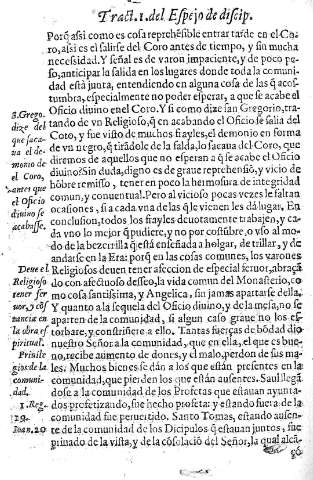 Tract. 1. del Espejo de discip.
Porq̃ assi como es cosa reprehẽsible entrar tarde en el Co-
ro, assi es el salirse del Coro antes de tiempo, y sin mucha
necessidad. Y señal es de varon impaciente, y de poco pe-
so, anticipar la salida en los lugares donde toda la comuni-
dad está junta, entendiendo en alguna cosa de las q̃ acos-
tumbra, especialmente no poder esperar, a que se acabe el
Oficio diuino en el Coro. Y si como dize san Gregorio, tra-
tando de vn Religioso, q̃ en acabando el Oficio se salia del
Coto, y fue visto de muchos frayles, el demonio en forma
de vn negro, q̃ tirãdole de la falda, lo sacaua del Coro, que
diremos de aquellos que no esperan a q̃ se acabe el Oficio
diuino? Sin duda, digno es de graue reprehensiõ, y vicio de
hõbre remisso, tener en poco la hermosura de integridad
comun, y conuentual. Pero al vicioso pocas vezes le faltan
ocasiones, si a cada vna de las q̃ le vienen les dà lugar. En
conclusion, todos los frayles deuotamente trabajen, y ca-
da vno lo mejor q̃ pudiere, y no por costũbre, o vso al mo-
do de la bezerrilla q̃ está enseñada a holgar, de trillar, y de
andarse en la Era: porq̃ en las cosas comunes, los varones
Religiosos deuen tener afeccion de especial feruor, abraçã
do con afectuoso desseo, la vida comun del Monasterio, co-
mo cosa santissima, y Angelica, sin jamas apartarse della.
Y quanto a lo q̃ es del Oficio diuino, y de la mesa, no se
aparten de la comunidad, si algun caso graue no los es-
torbare, y constriñere a ello. Tantas fuerças de bõdad dio
nuestro Señor a la comunidad, que en ella, el que es bue-
no, recibe aumento de dones, y el malo, perdon de sus ma-
les. Muchos bienes se dán a los que están presentes en la
comunidad, que pierden los que están ausentes. Saul llegã
dose a la comunidad de los Profetas que estauan ayunta-
dos profetizando, fue hecho profeta: y estando fuera de la
comunidad fue peruertido. Santo Tomas, estando ausen-
te de la comunidad de los Dicipulos q̃ estauan juntos, fue
priuado de la vista, y de la cõsolaciõ del Señor, la qual alcã-
S. Grego.
dize del
que saca-
ua el de-
monio de
el Coro,
antes que
el Oficio
diuino se
acabasse.
Deue el
Religioso
tener fer
uor, y cõs
tancia en
la obra es
piritual.
Priuile
gios de la
comuni-
dad.
1. Reg.
19.
Ioan. 20